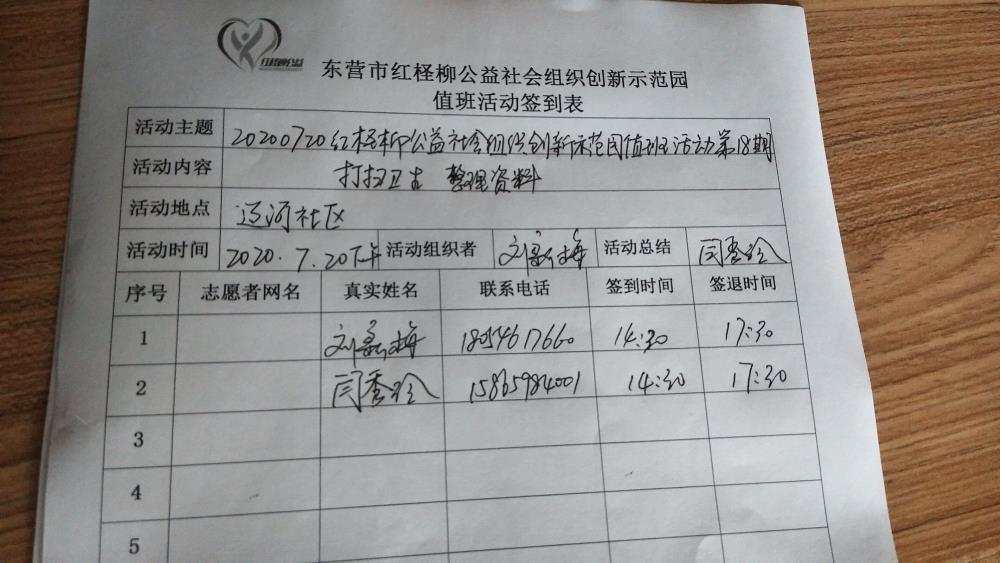 红柽柳公益
东营市红柽柳公益社会组织创新示范园
值班活动签到表
活动主题 20200720红柽柳公益社会组织创新示范园值班活动第18期
活动内容 打扫卫生 整理资料
活动地点 辽河社区
活动时间 2020.7.20下午 活动组织者 刘 梅 活动总结 闫秀玲
序号 志愿者网名 真实姓名 联系电话 签到时间 签退时间
1 刘 梅 18054617660 14:30 17:30
2 闫秀玲 15865984001 14:30 17:30
3
4
5